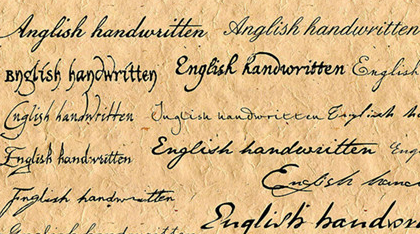 Anglish handwritten Anglish handwritten
English handwritten English handwritten English
English handwritten Inglish handwritten English
English handwritten English handwritten
English
English handwritten
English
English handwritten